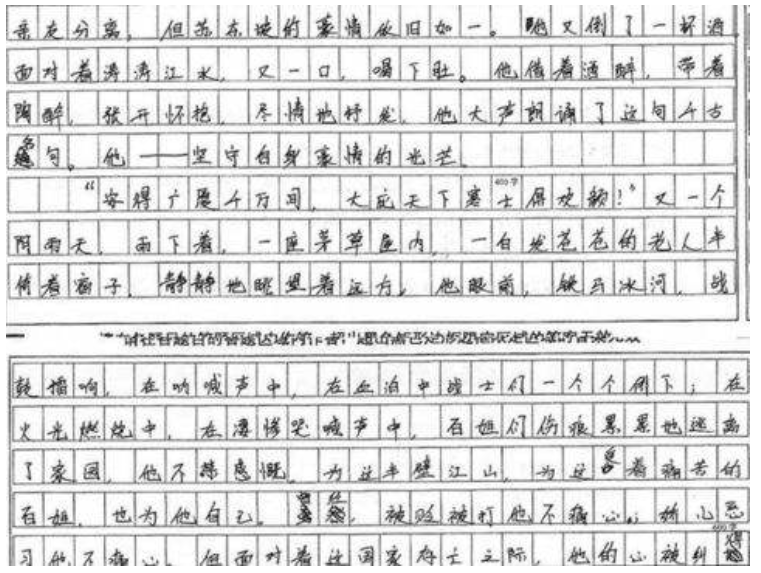 亲友分离，但苏东坡的豪情依旧如一。他又倒了一杯酒
面对着涛涛江水，又一口，喝下肚。他借着酒醉，带着
陶醉，张开怀抱，尽情地抒发，他大声朗诵了这句千古
名句。他——坚守自身豪情的光芒。
“容得广厦千万间，大庇天下寒士俱欢颜！”又一个
阴雨天，雨下着，一座茅草屋内，一白发苍苍的老人半
倚着窗子，静静地眺望着远方，他眼前，铁马冰河，战
鼓擂响，在呐喊声中，在血泊中战士们一个个倒下；在
火光燃烧中，在凄惨哭喊声中，百姓们伤痕累累地逃离
了家园，他不禁感慨，为这半壁江山，为这着痛苦的
百姓，也为他自己。曾经，被贬被打他不痛心；娇儿恶
习他不痛心，但面对着这国家存亡之际，他的心被纠得